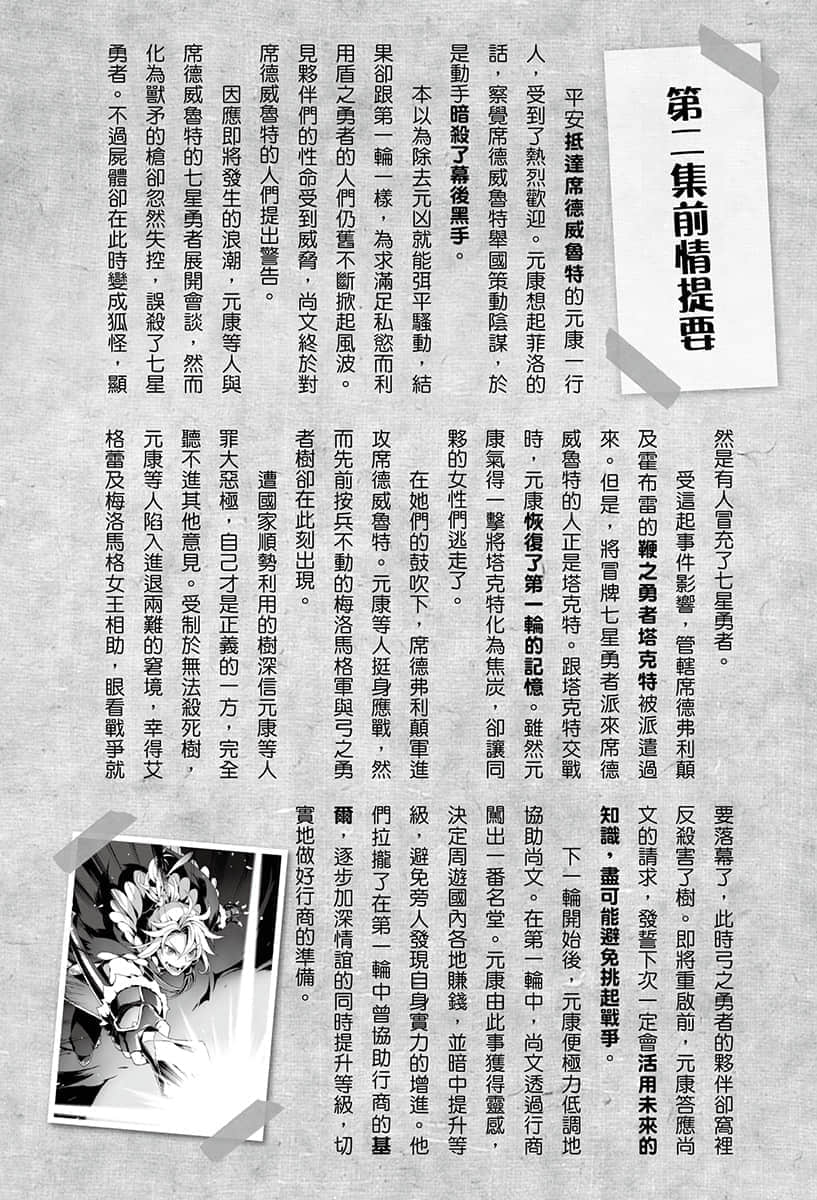 第二集前情提要
平安抵達席德威魯特的元康一行
人，受到了熱烈歡迎。元康想起菲洛的
話，察覺席德威魯特舉國策動陰謀，於
是動手暗殺了幕後黑手。
本以為除去元凶就能弭平騷動，結
果卻跟第一輪一樣，為求滿足私慾而利
用盾之勇者的人們仍舊不斷掀起風波。
見夥伴們的性命受到威脅，尚文終於對
席德威魯特的人們提出警告。
因應即將發生的浪潮，元康等人與
席德威魯特的七星勇者展開會談，然而
化為獸矛的槍卻忽然失控，誤殺了七星
勇者。不過屍體卻在此時變成狐怪，顯
然是有人冒充了七星勇者。
受這起事件影響，管轄席德弗利顛
及霍布雷的鞭之勇者塔克特被派遣過
來。但是，將冒牌七星勇者派來席德
威魯特的人正是塔克特。跟塔克特交戰
時，元康恢復了第一輪的記憶。雖然元
康氣得一擊將塔克特化為焦炭，卻讓同
夥的女性們逃走了。
在她們的鼓吹下，席德弗利顛軍進
攻席德威魯特。元康等人挺身應戰，然
而先前按兵不動的梅洛馬格軍與弓之勇
者樹卻在此刻出現。
遭國家順勢利用的樹深信元康等人
罪大惡極，自己才是正義的一方，完全
聽不進其他意見。受制於無法殺死樹，
元康等人陷入進退兩難的窘境，幸得艾
格蕾及梅洛馬格女王相助，眼看戰爭就
要落幕了，此時弓之勇者的夥伴卻窩裡
反殺害了樹。即將重啟前，元康答應尚
文的請求，發誓下次一定會活用未來的
知識，盡可能避免挑起戰爭。
下一輪開始後，元康便極力低調地
協助尚文。在第一輪中，尚文透過行商
闖出一番名堂。元康由此事獲得靈感，
決定周遊國內各地賺錢，並暗中提升等
級，避免旁人發現自身實力的增進。他
們拉攏了在第一輪中曾協助行商的基
爾，逐步加深情誼的同時提升等級，切
實地做好行商的準備。